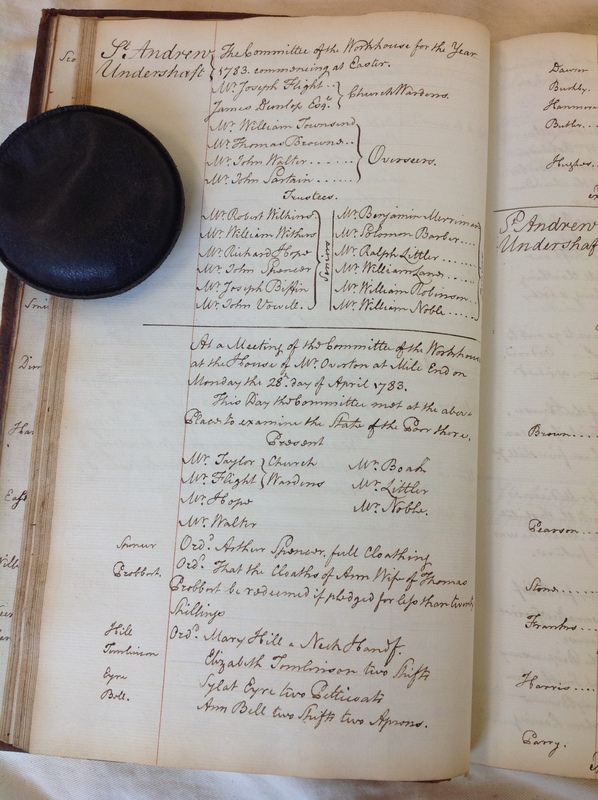 Sco
St. Andrew Undershaft
The Committee of the Workhouse for the Year
1783. commencing at Easter.
Mr. Joseph Flight..
James Dunlop Esqr.
Church Wardens.
Mr. William Townsend
Mr. Thomas Browne..
Mr. John Walter......
Mr. John Sartain....
Overseers.
Trustees.
Mr. Robert Wilkins
Mr. William Withers
Mr. Richard Hope
Mr. John Spencer
Mr. Joseph Biffin
Mr. John Vowell.
Seniors
Mr. Benjamin Merriman
Mr. Solomon Barber....
Mr. Ralph Littler.....
Mr. William Lane.....
Mr. William Robinson...
Mr. William Noble.....
At a Meeting of the Committee of the Workhouse
at the House of Mr. Overton at Mile End on
Monday the 28th. day of April 1783.
This Day the Committee met at the above
Place to examine the State of the Poor there,
Present
Mr. Taylor
Mr. Flight
Church Wardens
Mr. Hope
Mr. Walter
Mr. Boak
Mr. Littler
Mr. Noble.
Spencer
Ord. Arthur Spencer, full Cloathing
Probbert.
Ord. That the Cloaths of Ann Wife of Thomas
Probbert be redeemed if pledged for less than twenty
Shillings
Hill
Ord. Mary Hill a Neck Handf.
Tomlinson
Elizabeth Tomlinson two Shifts
Eyre
Eyre two Petticoats
Bell.
Ann Bell two Shifts two Aprons.
Dawson
Hughes....
St. Andrew
Undershaft
Brown....
Pearson....
Stone......
Franks...
Harris....
Parry.